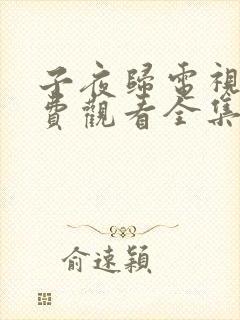 子夜歸電視
費觀看全集
俞遠穎